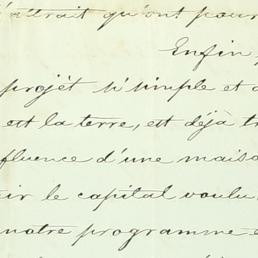 l'attrait qu'ont pour
Enfin,
projèt si simple et
est la terre, est déjà
fluence d'une maiso
ir le capital voulu
notre programme